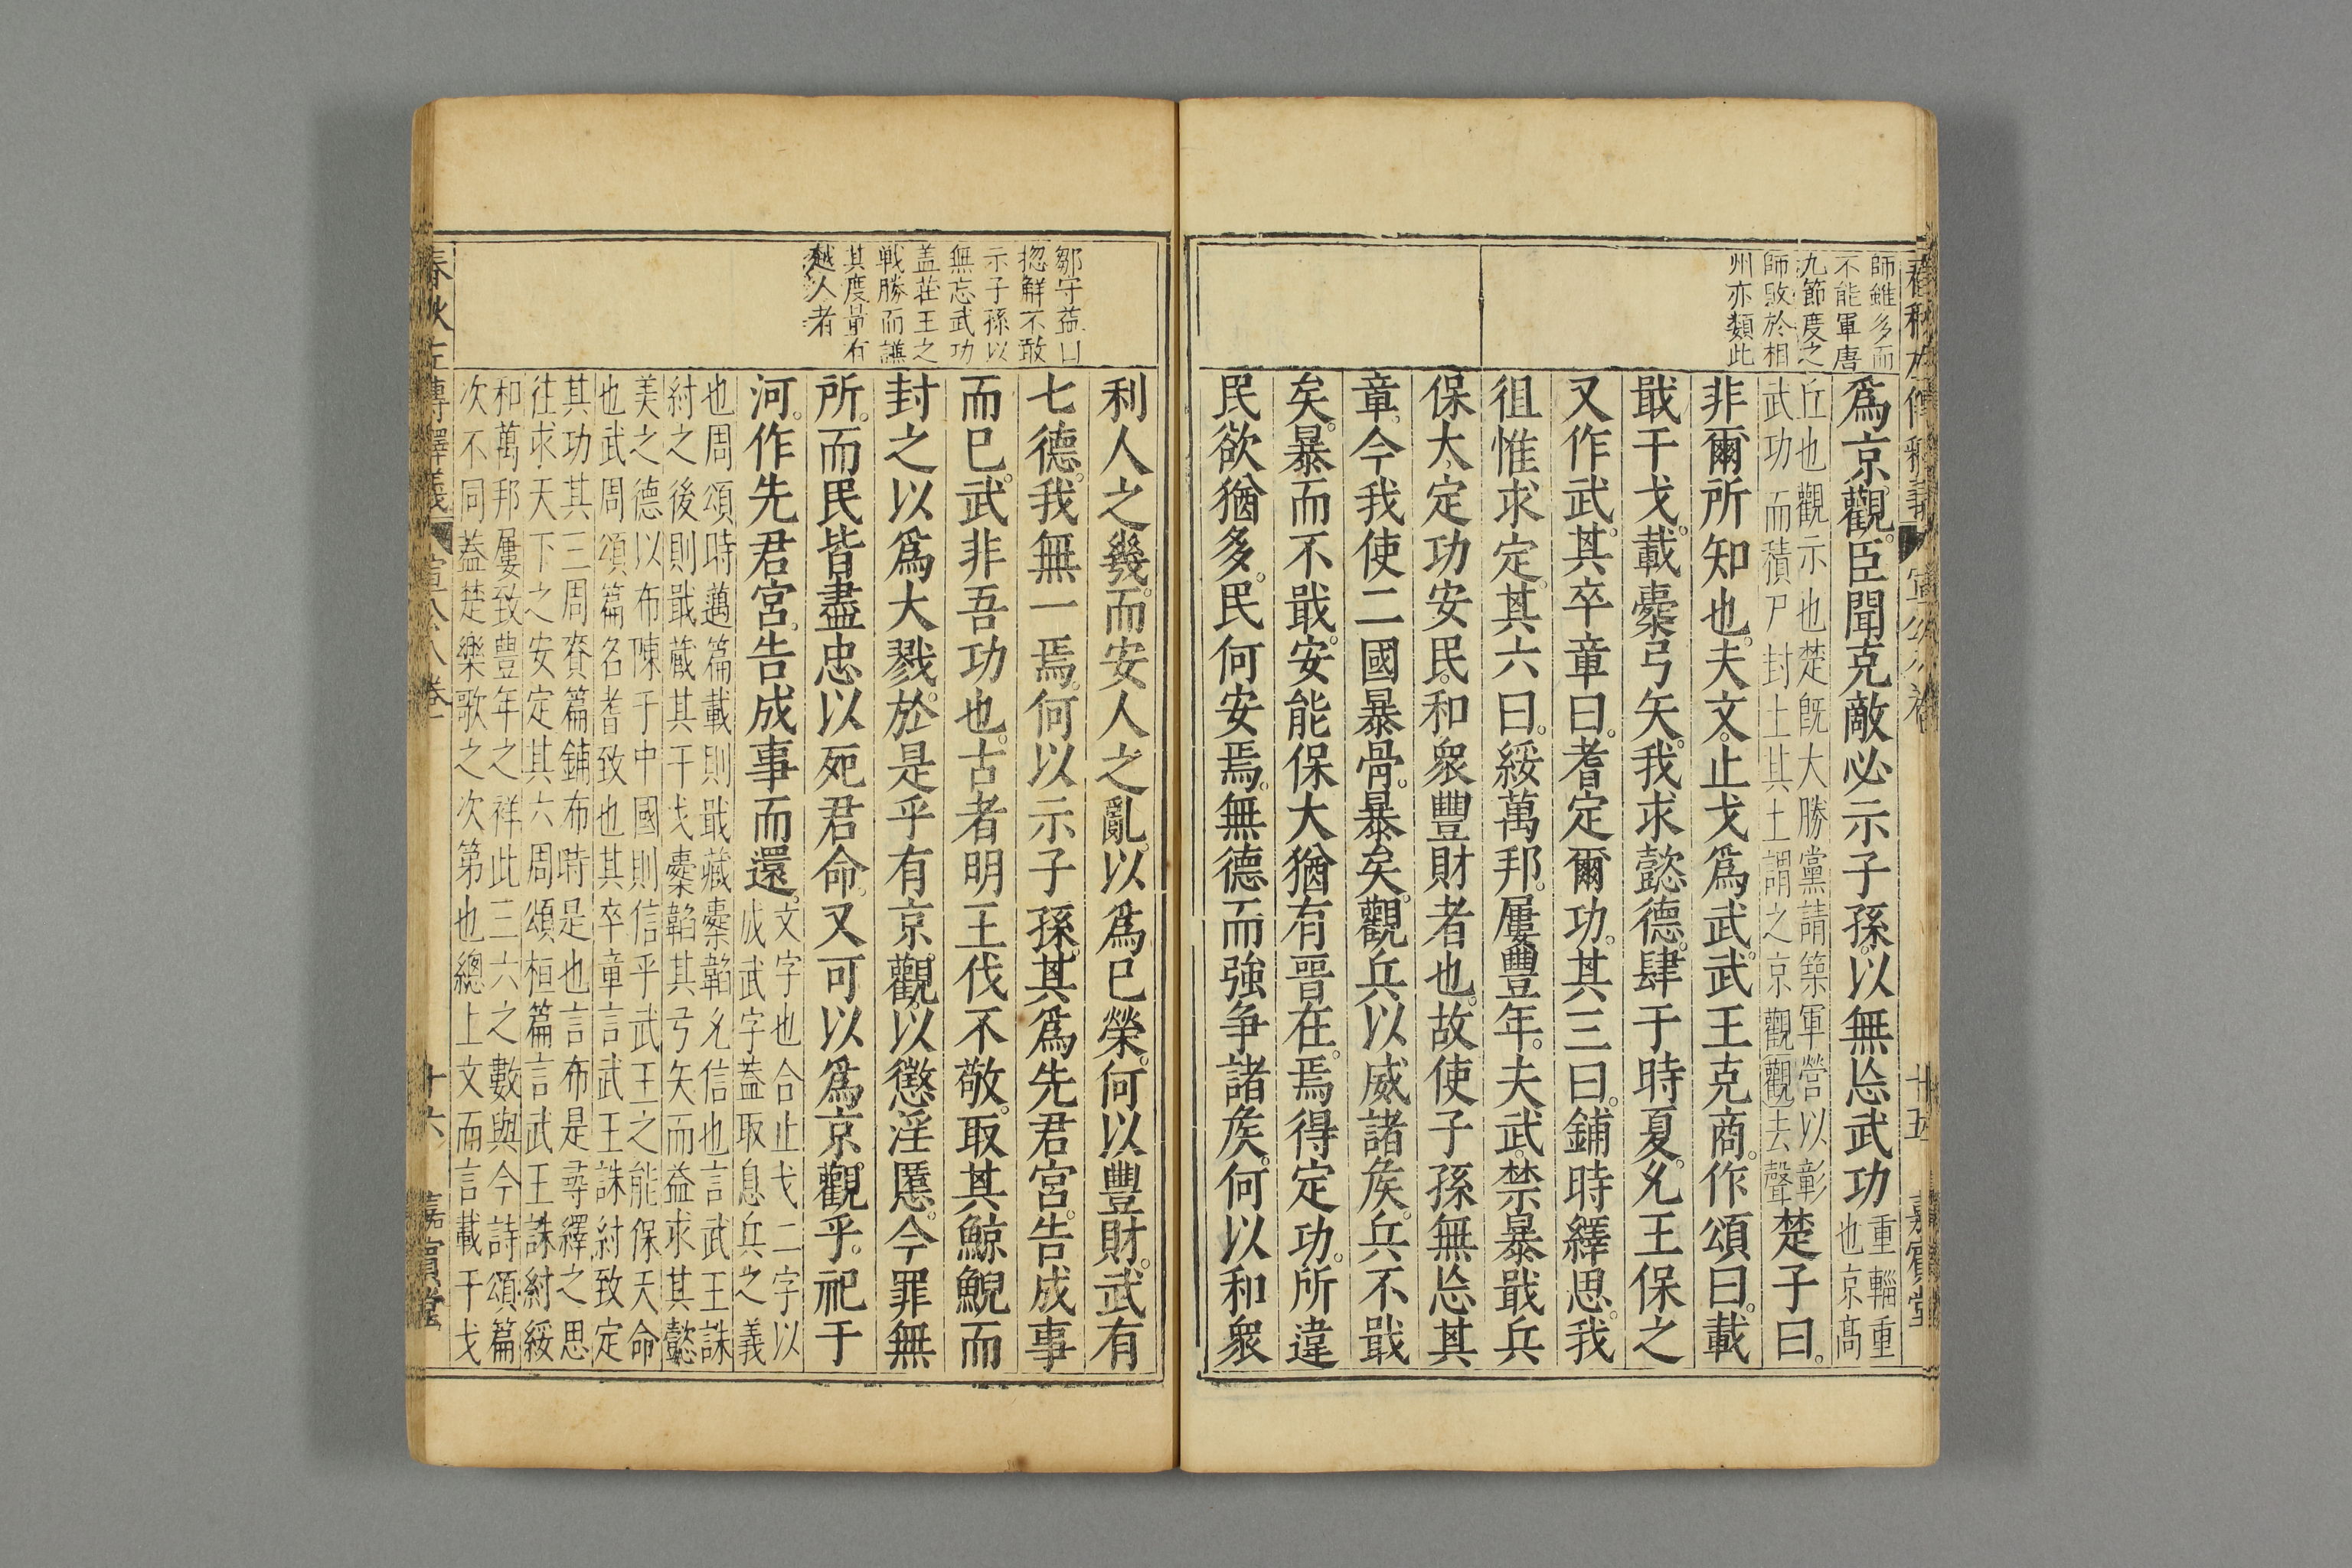 師雖多而
不能軍唐
九節度之
師敗於相
州亦類此
爲京觀臣聞克敵必示子孫以無忘武功
重輜重
也京髙
丘也觀示也楚旣大勝黨請築軍營以彰
武功而積尸封土其土謂之京觀觀去聲
楚子曰
非爾所知也夫文止戈爲武武王克商作頌曰載
戢干戈載櫜弓矢我求懿德肆于時夏允王保之
又作武其卒章曰耆定爾功其三曰鋪時繹思我
徂惟求定其六曰綏萬邦屢豐年夫武禁暴戢兵
保大定功安民和衆豐財者也故使子孫無忘其
章今我使二國暴骨暴矣觀兵以威諸矦兵不戢
矣暴而不戢安能保大猶有晉在焉得定功所違
民欲猶多民何安焉無德而強争諸矦何以和衆
鄒守益曰
揔觧不敢
示子孫以
無忘武功
盖莊王之
戦勝而譙
其度量有
越人者
利人之幾而安人之亂以爲已榮何以豐財武有
七德我無一焉何以示子孫其爲先君宫告成事
而已武非吾功也古者明王伐不敬取其鯨鯢而
封之以爲大戮於是乎有京觀以懲淫慝今罪無
所而民皆盡忠以死君命又可以爲京觀乎祀于
河作先君宫告成事而還
文字也合止戈二字以
成武字葢取息兵之義
也周頌時邁篇載則戢藏櫜韜允信也言武王誅
紂之後則戢蔵其干戈櫜韜其弓矢而益求其懿
美之德以布陳于中國則信乎武王之能保天命
也武周頌篇名耆致也其卒章言武王誅紂致定
其功其三周賚篇鋪布時是也言布是尋繹之思
徃求天下之安定其六周頌桓篇言武王誅紂綏
和萬邦屢致豊年之祥此三六之數與今詩頌篇
次不同葢楚樂歌之次第也總上文而言載干戈
春秋左傳釋義
宣公八卷
十六
嘉賓堂